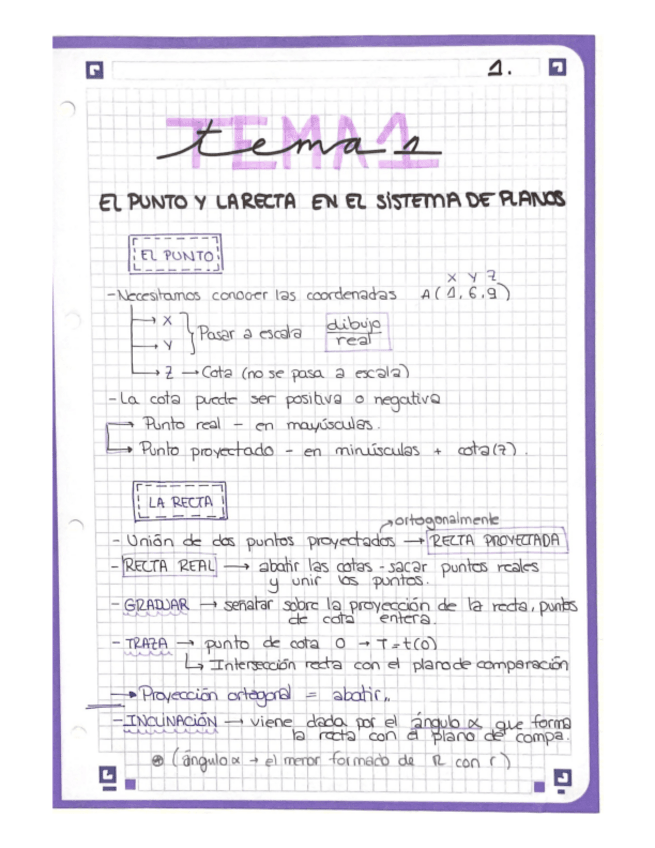 1.
TEMA 1
tema 1
EL PUNTO Y LA RECTA EN EL SISTEMA DE PLANOS
EL PUNTO
X Y Z
- Necesitamos conocer las coordenadas A (1,6,9)
→ X
→ Y
Pasar a escala dibujo
real
→ Z → Cota (no se pasa a escala)
- La cota puede ser positiva o negativa
→ Punto real - en mayúsculas.
→ Punto proyectado - en minúsculas + cota (z).
LA RECTA
→ ortogonalmente
- Unión de dos puntos proyectados → RECTA PROYECTADA
- RECTA REAL → abatir las cotas - sacar puntos reales
y unir los puntos.
- GRADUAR → señalar sobre la proyección de la recta, puntos
de cota entera.
- TRAZA → punto de cota 0 → T = t(0)
↳ Intersección recta con el plano de comparación
→ Proyección ortogonal = abatir,,
- INCLINACIÓN → viene dada por el ángulo α que forma
la recta con el plano de compa.
(ángulo α → el menor formado de R con r)